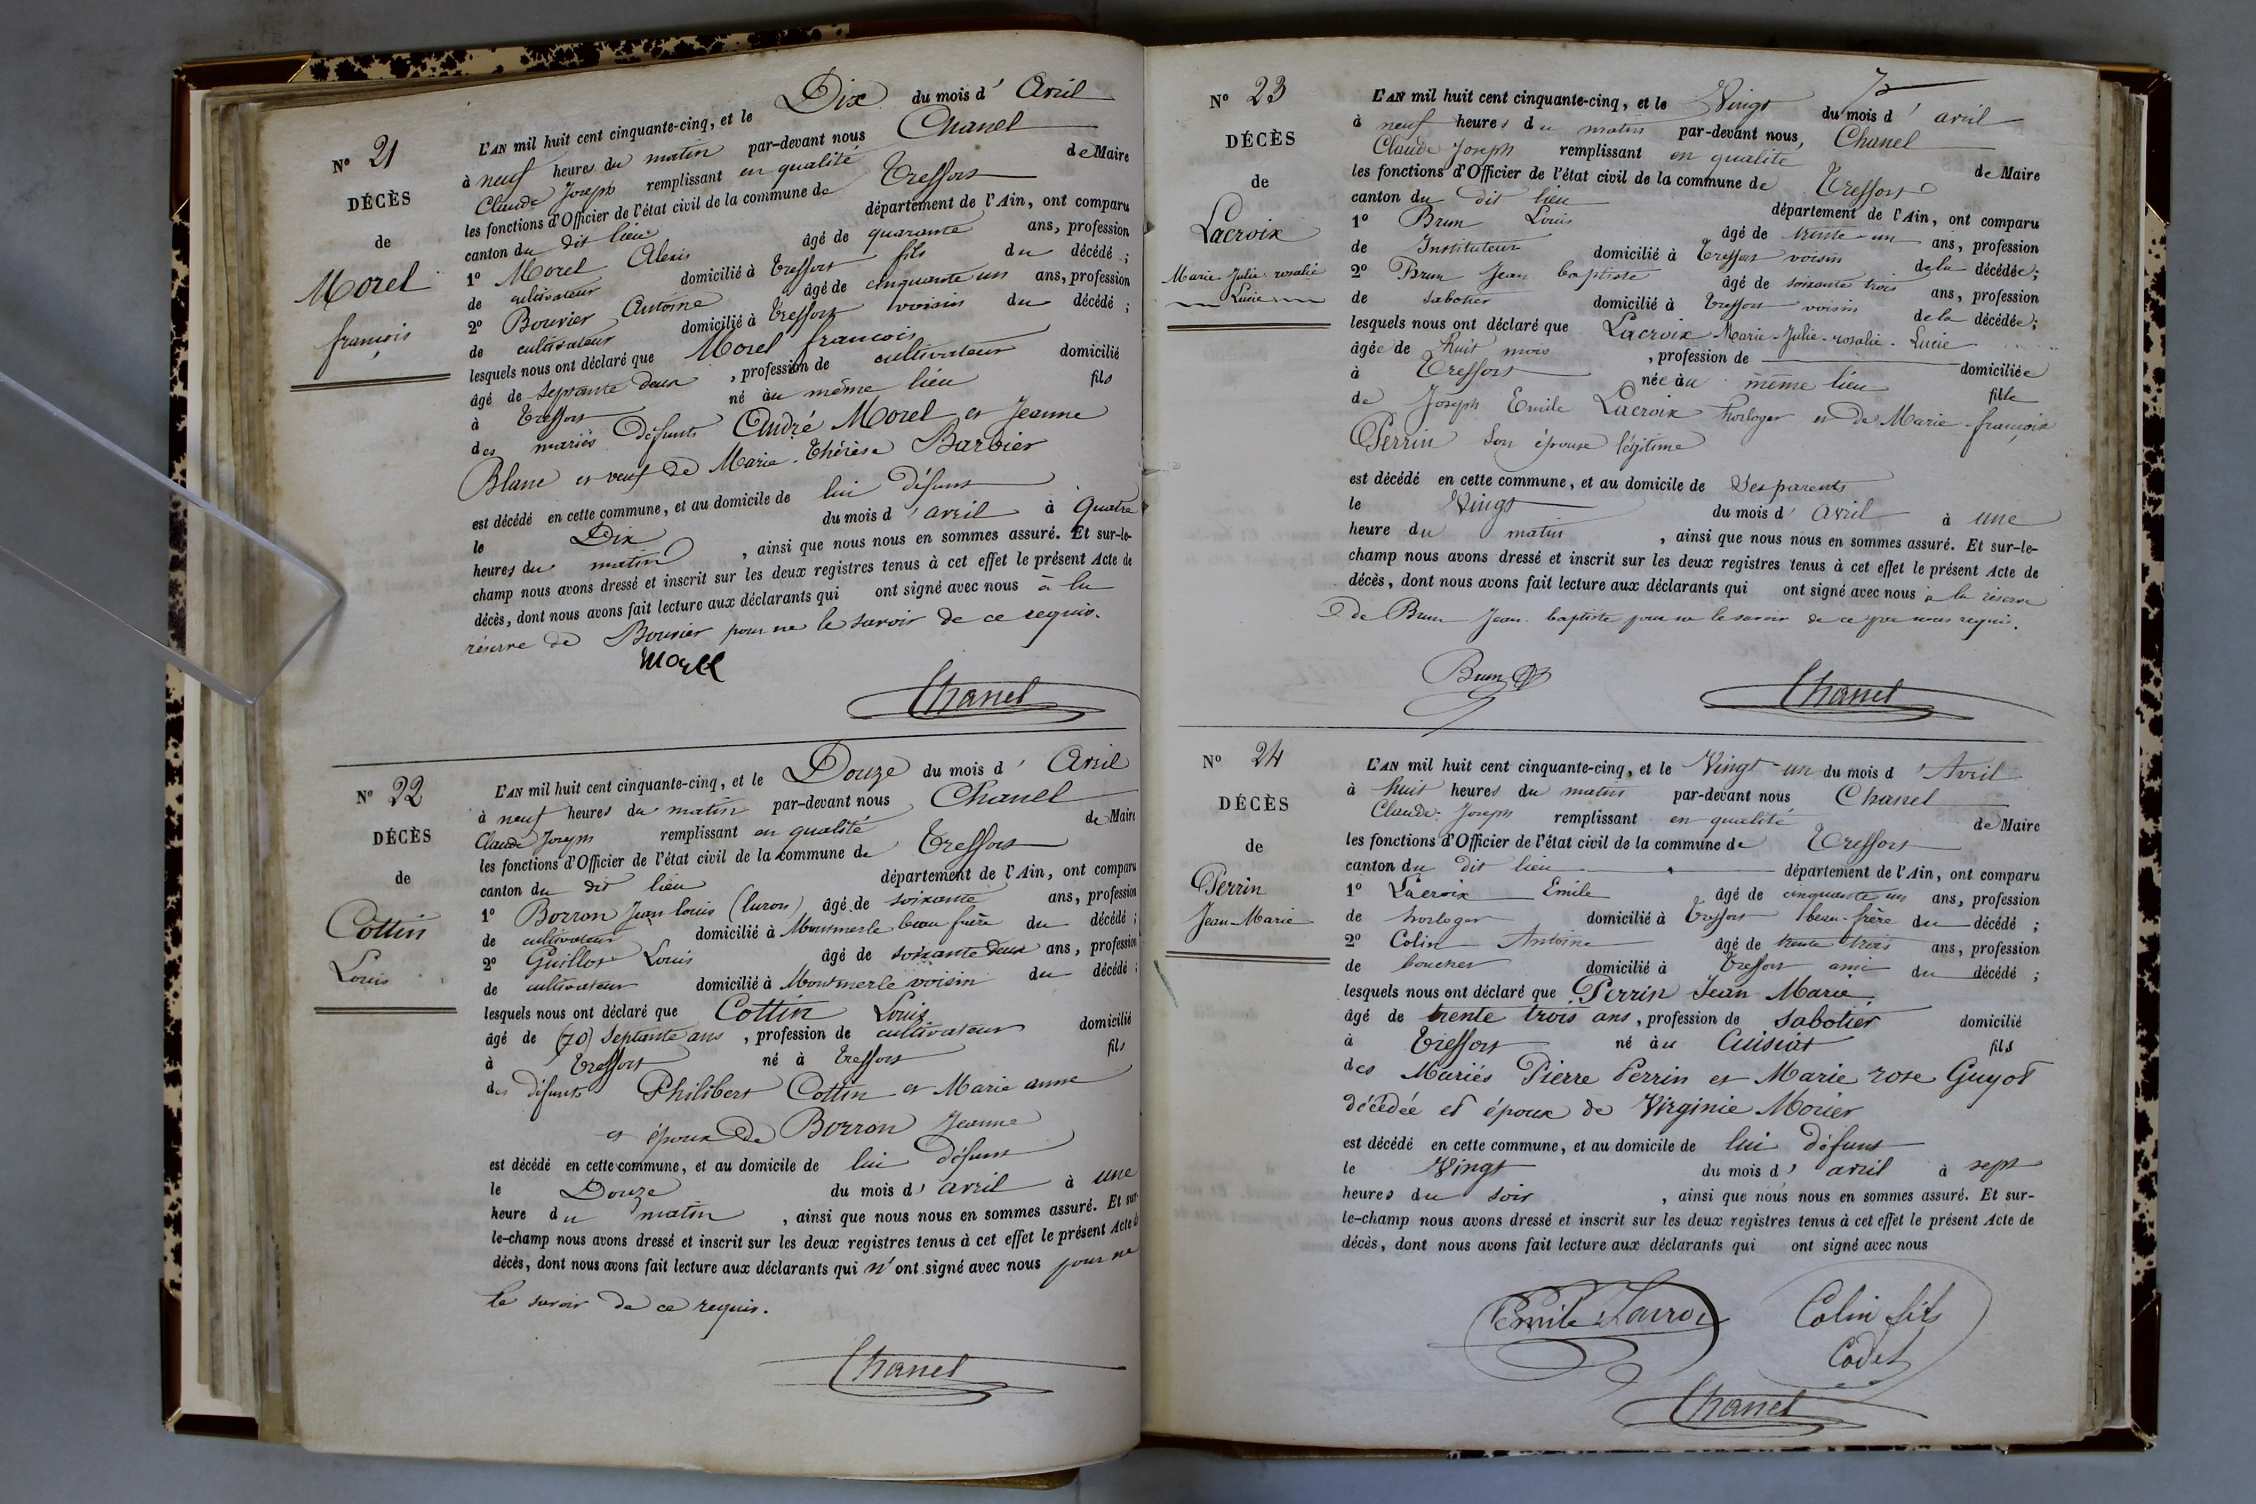 N° 21
DÉCÈS
de
Morel
françois
L'AN mil huit cent cinquante-cinq, et le Dix du mois d' Avril
à neuf heures du matin par-devant nous Chanel
Claude Joseph remplissant en qualité de Maire
les fonctions d'Officier de l'état civil de la commune de Treffort
canton du dit lieu département de l'Ain, ont comparu
1° Morel Alexis âgé de quarante ans, profession
de cultivateur domicilié à Treffort fils du décédé ;
2° Bouvier Antoine âgé de cinquante un ans, profession
de cultivateur domicilié à Treffort voisin du décédé ;
lesquels nous ont déclaré que Morel francois
âgé de septante deux , profession de cultivateur domicilié
à Treffort né au même lieu fils
des mariés défunts André Morel et Jeanne
Blanc et veuf de Marie-Thérèse Barbier
est décédé en cette commune, et au domicile de lui défunt
le Dix du mois d' avril à Quatre
heures du matin , ainsi que nous nous en sommes assuré. Et sur-le-
champ nous avons dressé et inscrit sur les deux registres tenus à cet effet le présent Acte de
décès, dont nous avons fait lecture aux déclarants qui ont signé avec nous à la
réserve de Bouvier pour ne le savoir de ce requis.
Morel
Chanel
N° 22
DÉCÈS
de
Cottin
Louis
L'AN mil huit cent cinquante-cinq, et le Douze du mois d' Avril
à neuf heures du matin par-devant nous Chanel
Claude Joseph remplissant en qualité de Maire
les fonctions d'Officier de l'état civil de la commune de Treffort
canton du dit lieu département de l'Ain, ont comparu
1° Borron Jean Louis (luron) âgé de soixante ans, profession
de cultivateur domicilié à Montmerle beau frère du décédé ;
2° Guillot Louis âgé de soixante deux ans, profession
de cultivateur domicilié à Montmerle voisin du décédé ;
lesquels nous ont déclaré que Cottin Louis
âgé de (70) septante ans , profession de cultivateur domicilié
à Treffort né à Treffort fils
des défunts Philibert Cottin et Marie anne
et époux de Borron Jeanne
est décédé en cette commune, et au domicile de lui défunt
le Douze du mois d' avril à une
heure du matin , ainsi que nous nous en sommes assuré. Et sur-
le-champ nous avons dressé et inscrit sur les deux registres tenus à cet effet le présent Acte de
décès, dont nous avons fait lecture aux déclarants qui n' ont signé avec nous pour ne
le savoir de ce requis.
Chanel
N° 23
DÉCÈS
de
Lacroix
Marie-Julie-rosalie
Lucie
L'AN mil huit cent cinquante-cinq, et le Vingt du mois d' avril
à neuf heures du matin par-devant nous, Chanel
Claude Joseph remplissant en qualité de Maire
les fonctions d'Officier de l'état civil de la commune de Treffort
canton du dit lieu département de l'Ain, ont comparu
1° Brun Louis âgé de trente-un ans, profession
de Instituteur domicilié à Treffort voisin de la décédée ;
2° Brun Jean baptiste âgé de soixante trois ans, profession
de sabotier domicilié à Treffort voisin de la décédée ;
lesquels nous ont déclaré que Lacroix Marie-Julie-rosalie-Lucie
âgée de huit mois , profession de domiciliée
à Treffort née au même lieu fille
de Joseph Emile Lacroix horloger et de Marie-françoise
Perrin son épouse légitime
est décédé en cette commune, et au domicile de ses parents
le Vingt du mois d' Avril à une
heure du matin , ainsi que nous nous en sommes assuré. Et sur-le-
champ nous avons dressé et inscrit sur les deux registres tenus à cet effet le présent Acte de
décès, dont nous avons fait lecture aux déclarants qui ont signé avec nous à la réserve
de Brun Jean baptiste pour ne le savoir de ce par nous requis.
Brun
Chanel
N° 24
DÉCÈS
de
Perrin
Jean-Marie
L'AN mil huit cent cinquante-cinq, et le Vingt un du mois d' Avril
à huit heures du matin par-devant nous Chanel
Claude-Joseph remplissant en qualité de Maire
les fonctions d'Officier de l'état civil de la commune de Treffort
canton du dit lieu département de l'Ain, ont comparu
1° Lacroix Emile âgé de cinquante un ans, profession
de horloger domicilié à Treffort beau-frère du décédé ;
2° Colin Antoine âgé de trente trois ans, profession
de boucher domicilié à Treffort ami du décédé ;
lesquels nous ont déclaré que Perrin Jean Marie
âgé de trente trois ans , profession de sabotier domicilié
à Treffort né au Cuisiat fils
des Mariés Pierre Perrin et Marie rose Guyot
décédée et époux de Virginie Morier
est décédé en cette commune, et au domicile de lui défunt
le Vingt du mois d' avril à sept
heures du soir , ainsi que nous nous en sommes assuré. Et sur-
le-champ nous avons dressé et inscrit sur les deux registres tenus à cet effet le présent Acte de
décès, dont nous avons fait lecture aux déclarants qui ont signé avec nous
Emile Lacroix
Colin fils
Cadet
Chanel